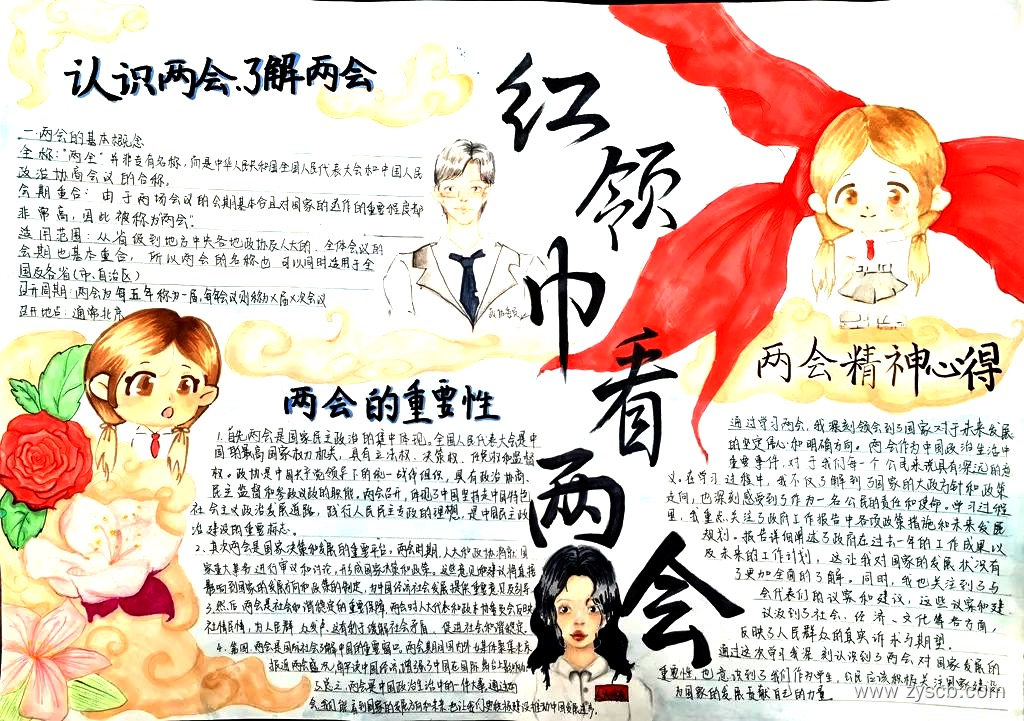 认识两会、了解两会
一.两会的基本概念
全称:"两会"并非专有名称,而是中华人民共和国全国人民代表大会和中国人民
政治协商会议的合称。
会期重合:由于两场会议的会期基本合且对国家的运作的重要程度都
非常高,因此被称为两会".
适用范围:从省级到地方中央各地政协及人大的、全体会议的
会期也基本重合,所以两会的名称也可以同时适用于全
国及各省(市、自治区)
召开周期:两会为每五年称为一届,每年会议则称为X届X次会议
召开地点:通常北京
红领巾看两会
两会的重要性
1.首先两会是国家民主政治的集中体现。全国人民代表大会是中
国的最高国家权力机关,具有立法权、决策权、任免权和监督
权。政协是中国共产党领导下的统一战线组织,具有政治协商、
民主监督和参政议政的职能。两会召开,体现了中国坚持走中国特色
社会主义政治发展道路,践行人民民主专政的理想,是中国民主政
治建设的重要标志。
2、其次两会是国家决策和发展的重要平台。两会时期,人大和政协将就国
家重大事务进行审议和讨论,形成国家决策和政策。这些意见和建议将直接
影响到国家的发展方向和政策的制定,为中国经济社会发展提供重要意见及引导
3.然后两会是社会和谐稳定的重要保障。两会时人大代表和政协委员会反映
社情民情,为人民群众发声,这有利于缓解社会矛盾,促进社会和谐稳定.
4.第四.两会是国际社会了解中国的重要窗口。两会期间国内外媒体集体关
报道两会盛况,解读中国经济,增强了中国在国际舞台上影响力
5.总之,两会是中国政治生活中的一件大事,通过两
会,我们能看到国家的发展方向和未来,也让我们更积极建设推动中国发展进步.
两会精神心得
通过学习两会,我深刻领会到了国家对于未来发展
的坚定信心和明确方向。两会作为中国政治生活中
重要事件,对于我们每一个公民来说具有深远的意
义。在学习过程中,我不仅了解到了国家的大政方针和政策
走向,也深刻感受到了作为一名公民的责任和使命。学习过程
里,我重点关注了政府工作报告中各项政策措施和未来发展
规划。报告详细阐述了政府在过去一年的工作成果以
及未来的工作计划,这让我对国家的发展状况有
了更加全面的了解。同时,我也关注到了与
会代表们的议案和建议,这些议案和建
议涉及到了社会、经济、文化等各方面,
反映了人民群众的真实诉求与期望。
通过这次学习我深刻认识到了两会对国家发展的
重要性,也意识到了我们作为中生,公民应该积极关注国家建设
为国家的发展贡献自己的力量。
www.zyscb.com